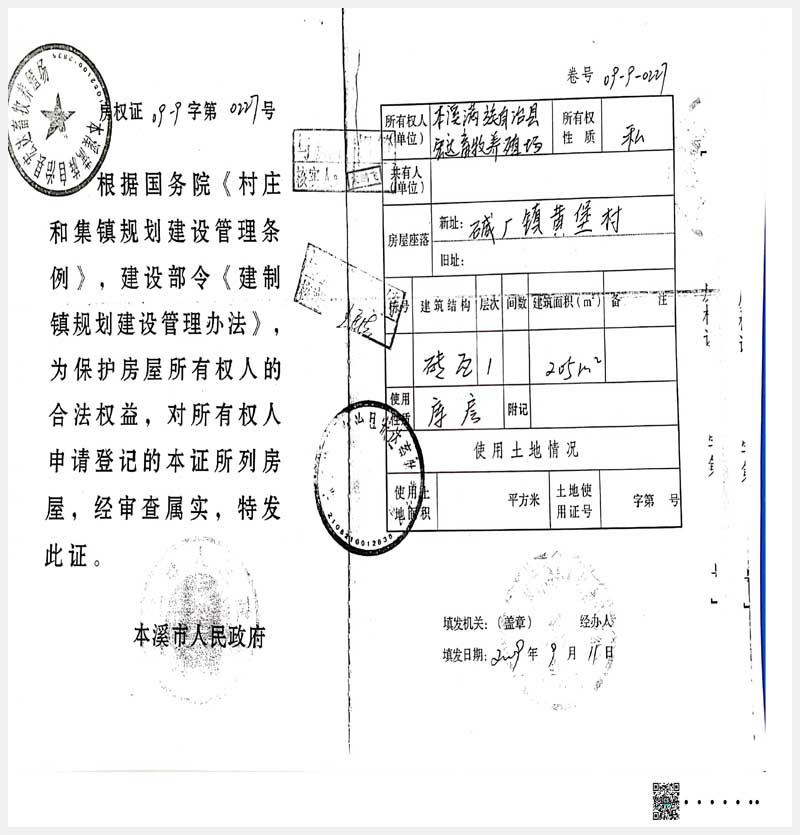 房权证 09-9 字第 0227 号
根据国务院《村庄
和集镇规划建设管理条
例》，建设部令《建制
镇规划建设管理办法》，
为保护房屋所有权人的
合法权益，对所有权人
申请登记的本证所列房
屋，经审查属实，特发
此证。
本溪市人民政府
卷号 09-9-0227
所有权人(单位) 本溪满族自治县宏达畜牧养殖场 所有权性质 私
共有人(单位)
房屋座落 新址: 碱厂镇黄堡村
旧址:
栋号 建筑结构 层次 间数 建筑面积(m²) 备注
砖瓦 1 205m²
使用性质 库房 附记
使用土地情况
使用土地面积 平方米 土地使用证号 字第 号
填发机关:(盖章) 经办人
填发日期: 2009 年 9 月 11 日
2108210012835